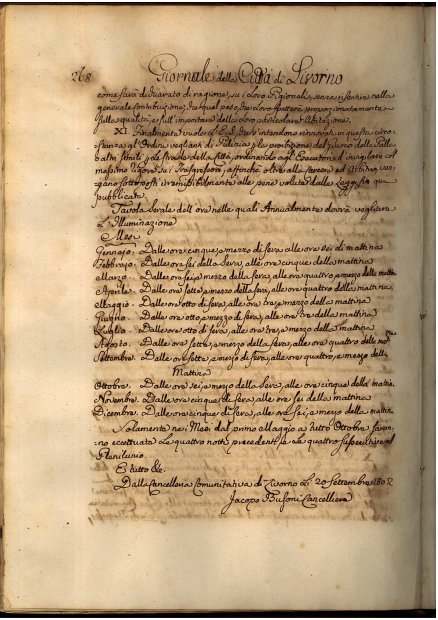 268 Giornale della Città di Livorno
come sarà dichiarato di ragione, su i loro Pigionali, senza inserire nella
generale contribuzione, da quel peso, che loro spetterà proporzionatamente
sulla qualità, e sull'importare della loro particolare Abitazione.
XI. Finalmente vuole la E. S. che s'intendano rinnovati in questa circo=
stanza gli Ordini veglianti di Pulizia, e la proibizione del giuoco delle Palle
o altri simili per le strade della Città, ordinando agli Esecutori d'invigilare col
massimo rigore su i Trasgressori, affinché oltre alla arbitrio ven=
gano sottoposti irremissibilmente alle pene volute dalle Leggi fin qui
pubblicate.
Tavola Serale dell'ore nelle quali Annualmente dovrà vegliare
L'Illuminazione
Mesi
Gennajo. Dalle ore cinque, e mezzo di sera alle ore sei di mattina
Febbrajo. Dalle ore sei della sera, alle ore cinque della mattina
Marzo. Dalle ore sei, e mezzo della sera, alle ore quattro, e mezzo della mattina
Aprile. Dalle ore sette, e mezzo della sera, alle ore quattro della mattina
Maggio. Dalle ore otto di sera, alle ore tre, e mezzo della mattina
Giugno. Dalle ore otto, e mezzo di sera, alle ore tre della mattina
Luglio. Dalle ore otto di sera, alle ore tre, e mezzo della mattina
Agosto. Dalle ore sette, e mezzo di sera, alle ore quattro della matt.na
Settembre. Dalle ore sette, e mezzo di sera, alle ore quattro, e mezzo della
Mattina
Ottobre. Dalle ore sei, e mezzo della sera, alle ore cinque della mattin.
Novembre. Dalle ore cinque di sera, alle ore sei della mattina
Dicembre. Dalle ore cinque di sera, alle ore sei, e mezzo della mattin.
Solamente nei Mesi dal primo Maggio a tutto Ottobre saran=
no eccettuate le quattro notti precedenti, e le quattro susseguenti al
Plenilunio.
E tutto &c.
Dalla Cancelleria Comunitativa di Livorno Lì 20 Settembre 1802
Jacopo Busoni Cancelliere